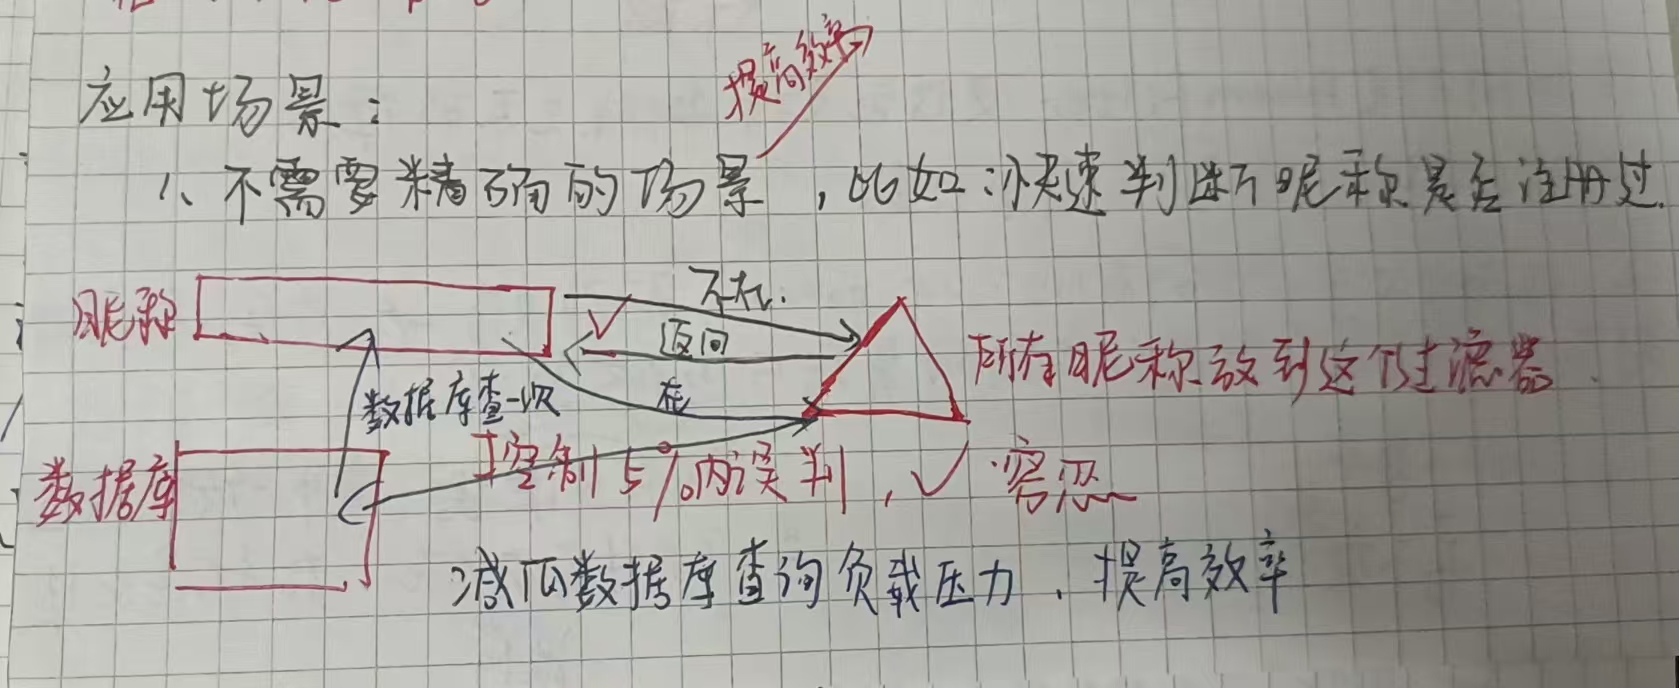 提高效率
应用场景：
1、不需要精确的场景，比如：快速判断昵称是否注册过.
不在.
昵称
返回
所有昵称放到这个过滤器
数据库查一次
在
控制5%内误判，√ 容忍
数据库
减小数据库查询负载压力、提高效率